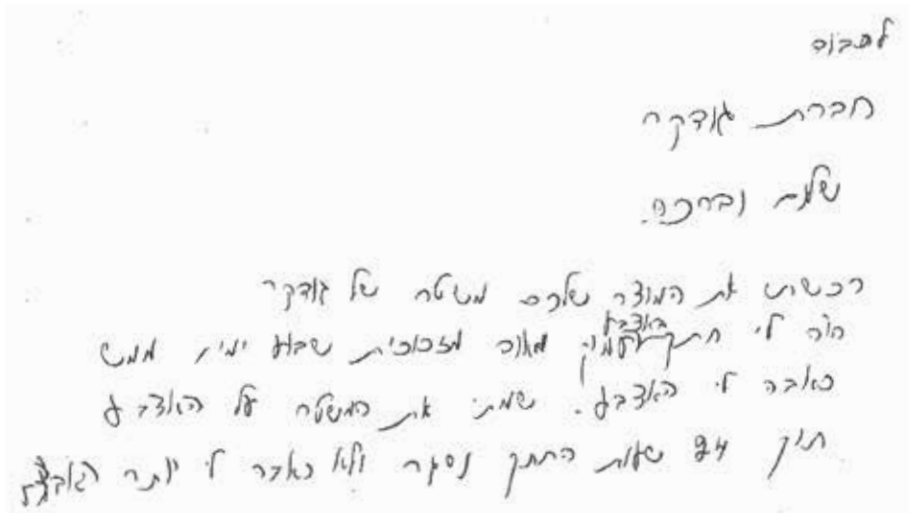 לכבוד
חברת גודקר
שלום וברכה.
רכשתי את המוצר שלכם משטח של גודקר
היה לי חתך באצבע עמוק מאוד מזכוכית שבוע ימים ממש
כאבה לי האצבע. שמתי את המשטח על האצבע
תוך 24 שעות החתך נסגר ולא כאבה לי יותר האצבע